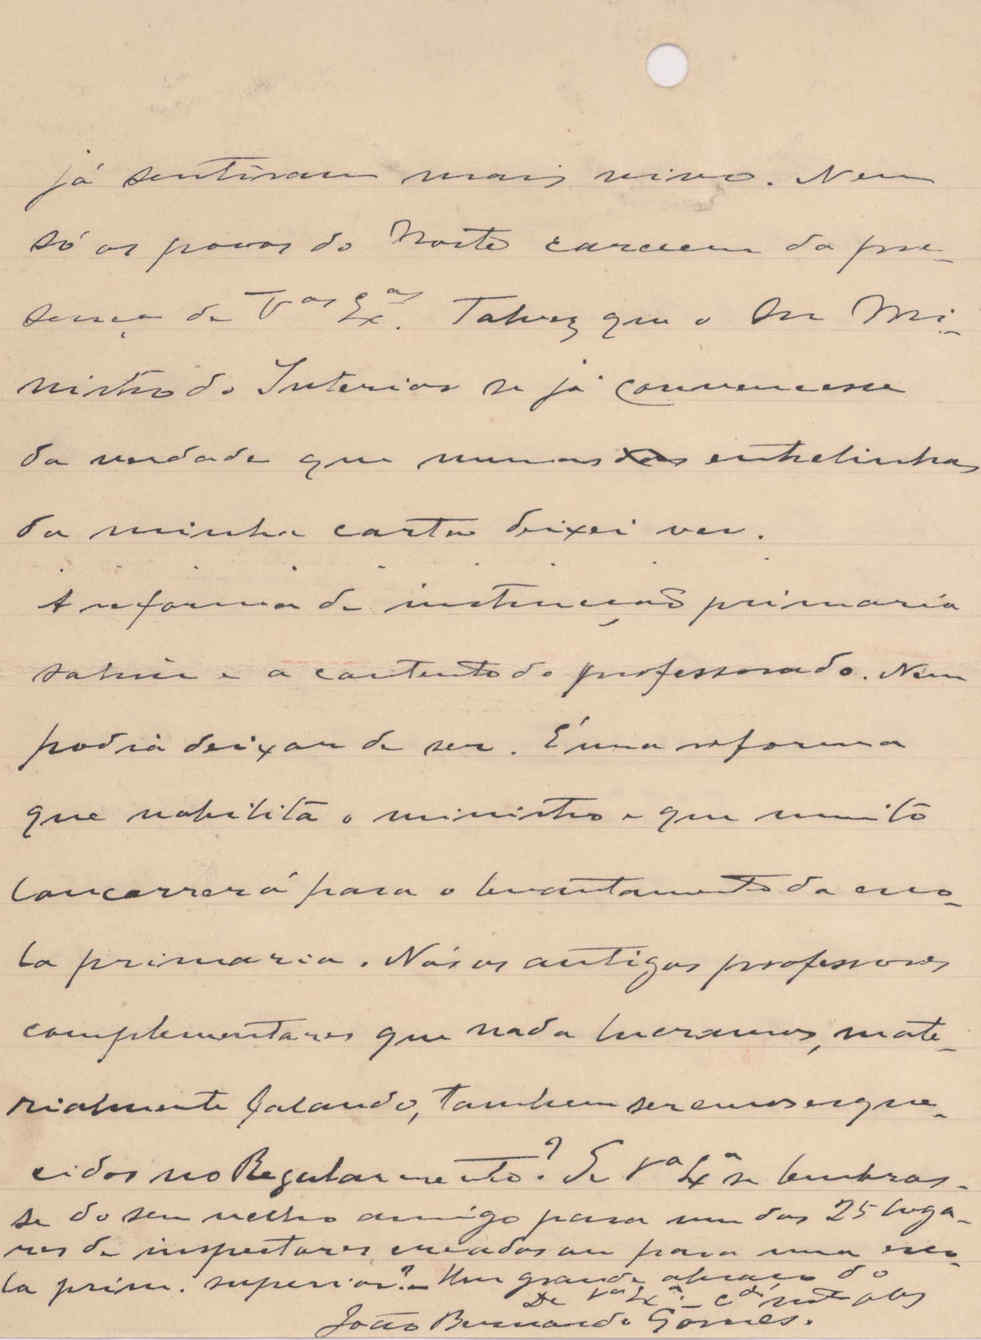 já sentiram mais vivo. Nem
só os povos do Norte carecem da pre-
sença de Vas Exas. Talvez que o Snr Mi-
nistro do Interior se já convencesse
da verdade que numas entrelinhas
da minha carta deixei ver.
A reforma de instrucção primaria
sahiu e a contento do professorado. Nem
podia deixar de ser. É uma reforma
que nobilita o ministro e que muito
concorrerá para o levantamento da esco-
la primaria. Nós os antigos professores
complementares que nada lucramos, mate-
rialmente falando, tambem seremos esque-
cidos no Regulamento? Se Va Exa se lembras-
se do seu velho amigo para um dos 25 loga-
res de inspectores creados ou para uma esco-
la prim. superior? - Um grande abraço do
De Va Exa - cdo mto obg
João Bernardo Gomes.